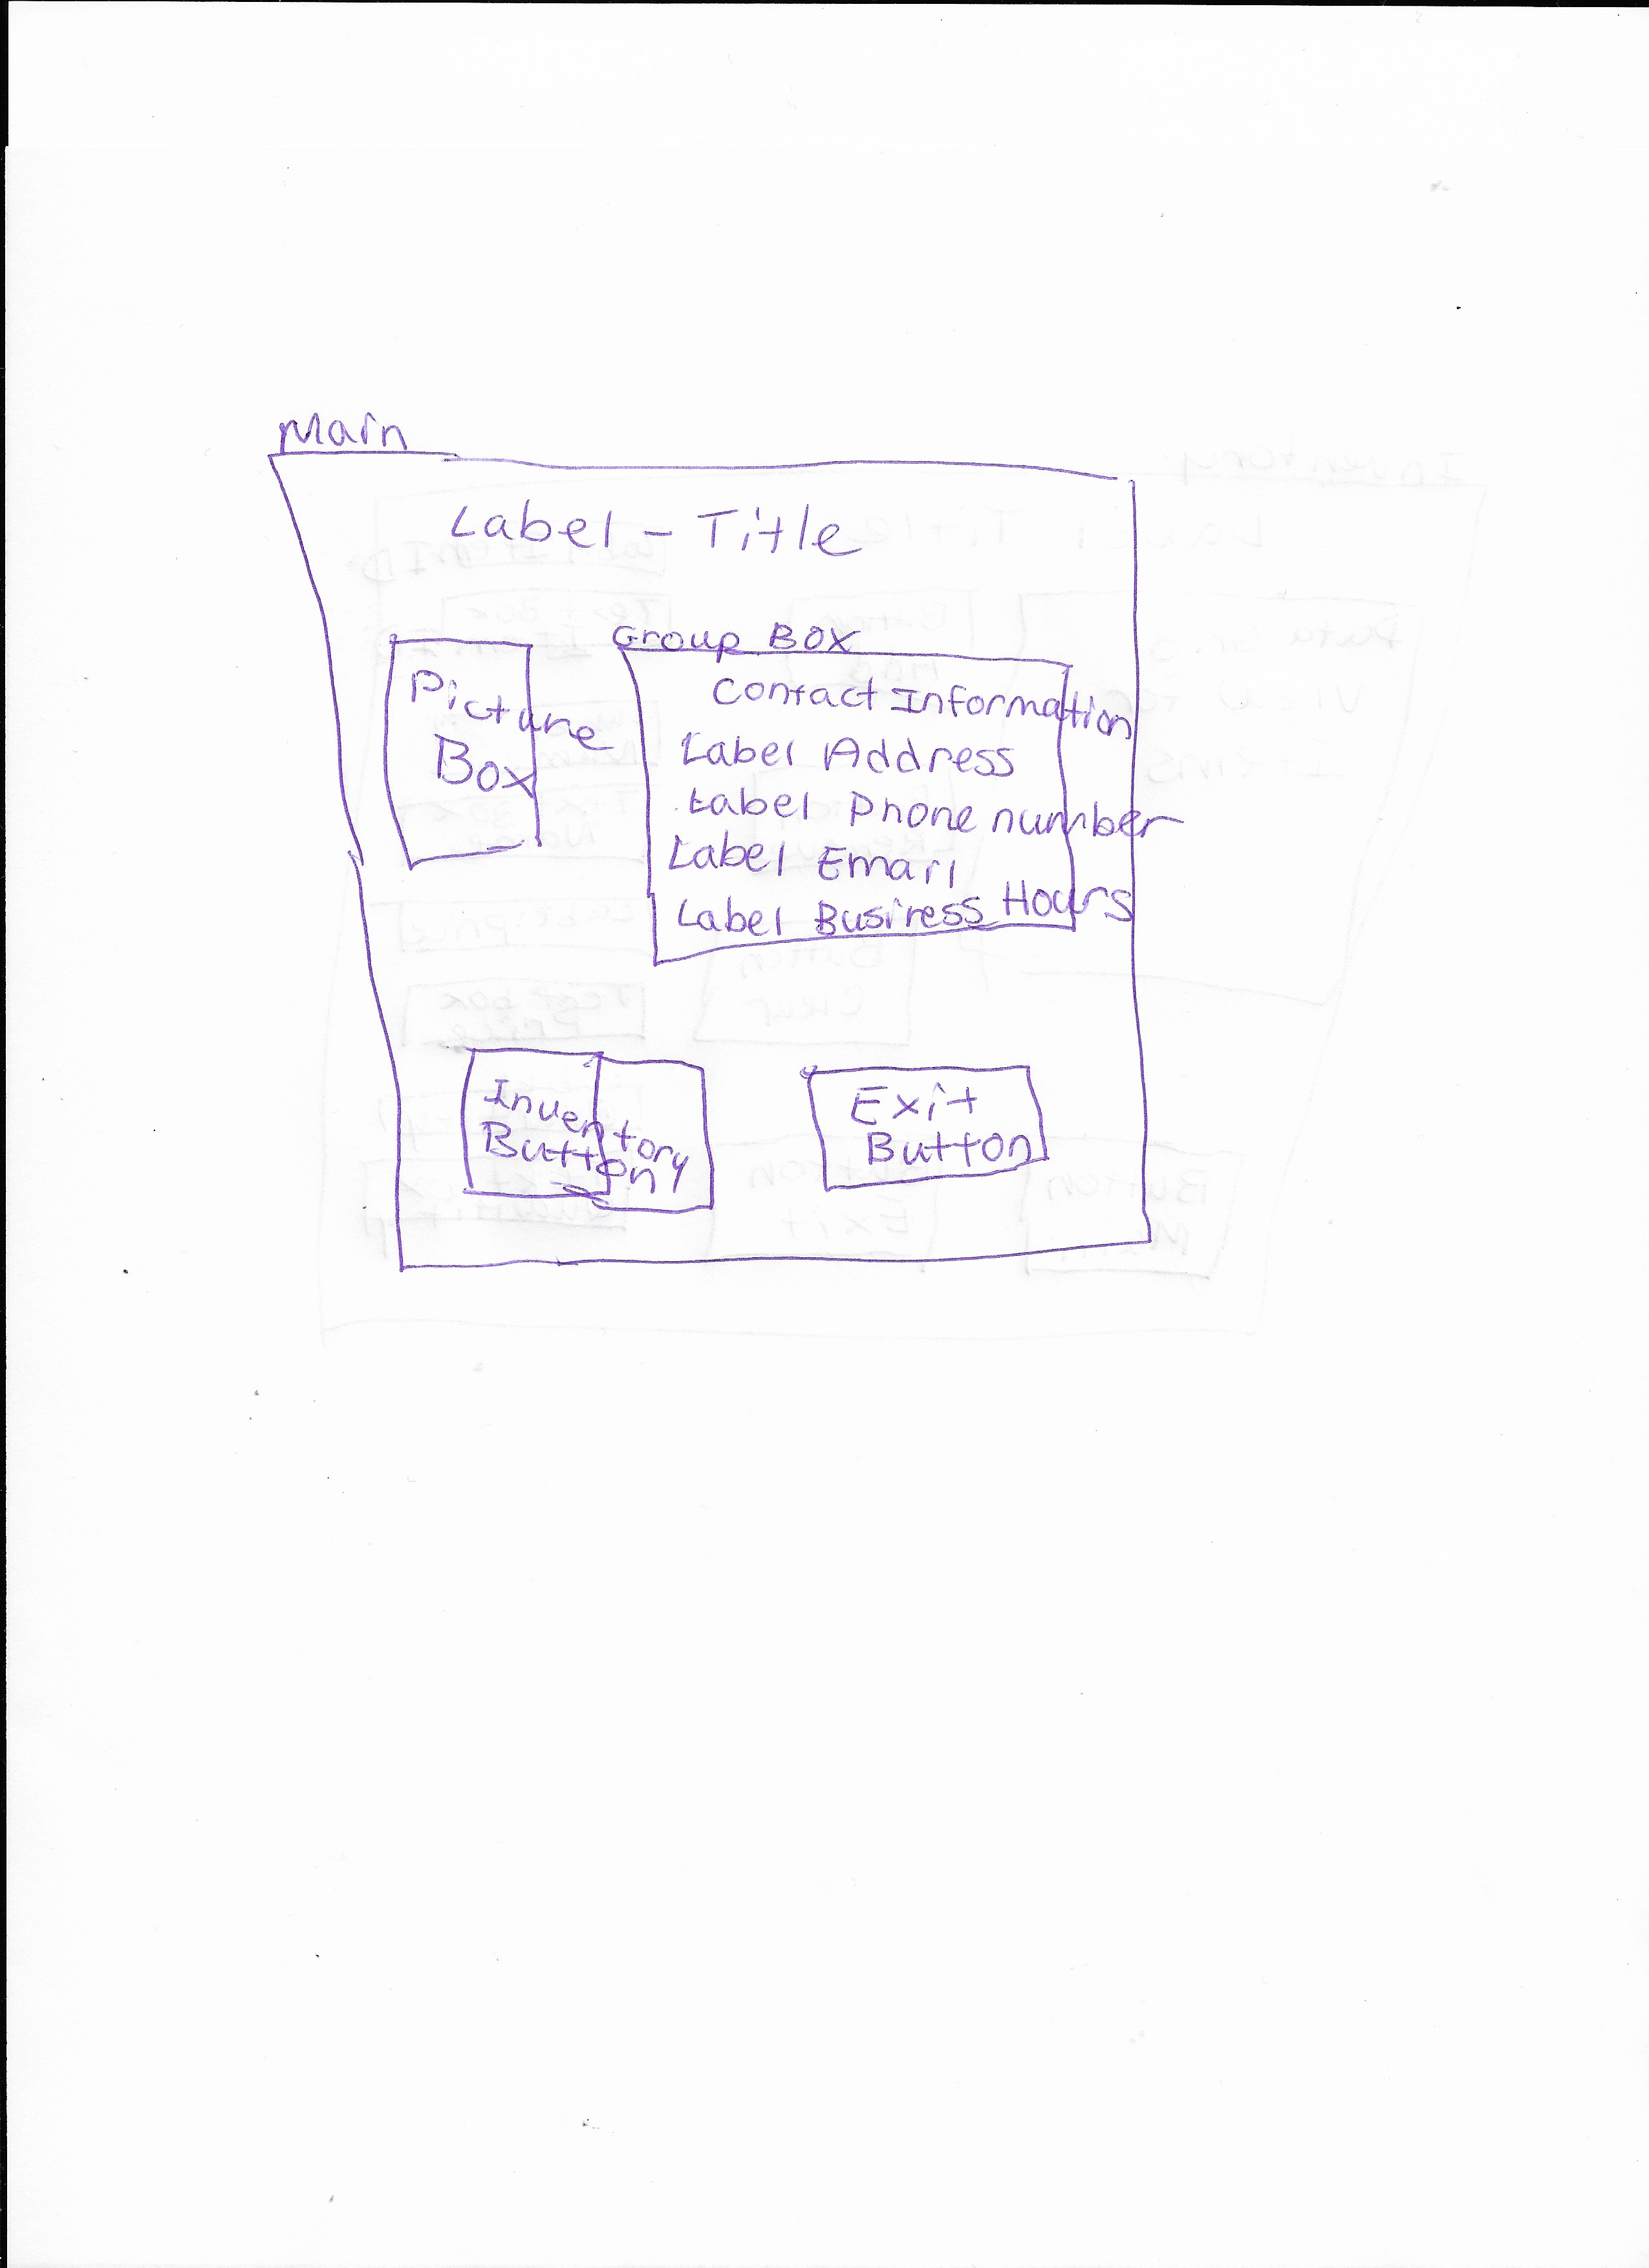 Main
Label - Title
Picture
Box
Group Box
Contact Information
Label Address
Label Phone number
Label Email
Label Business Hours
Inventory
Button
Exit
Button